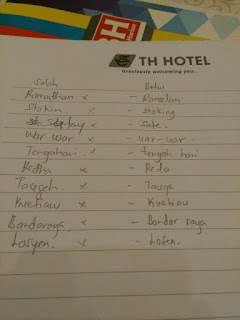 BH
TH HOTEL
Graciously welcoming you...
Salah Betul
Ramadhan x - Ramadan
Stokin x - stoking
x - Sate.
War war x - uar-uar
Tengahari x - tengah hari
Redha x - Reda
Taugeh x - Tauge
Kuetiaw x - Kuetiau
Bandaraya x - Bandar raya
Losyen x - Losen.